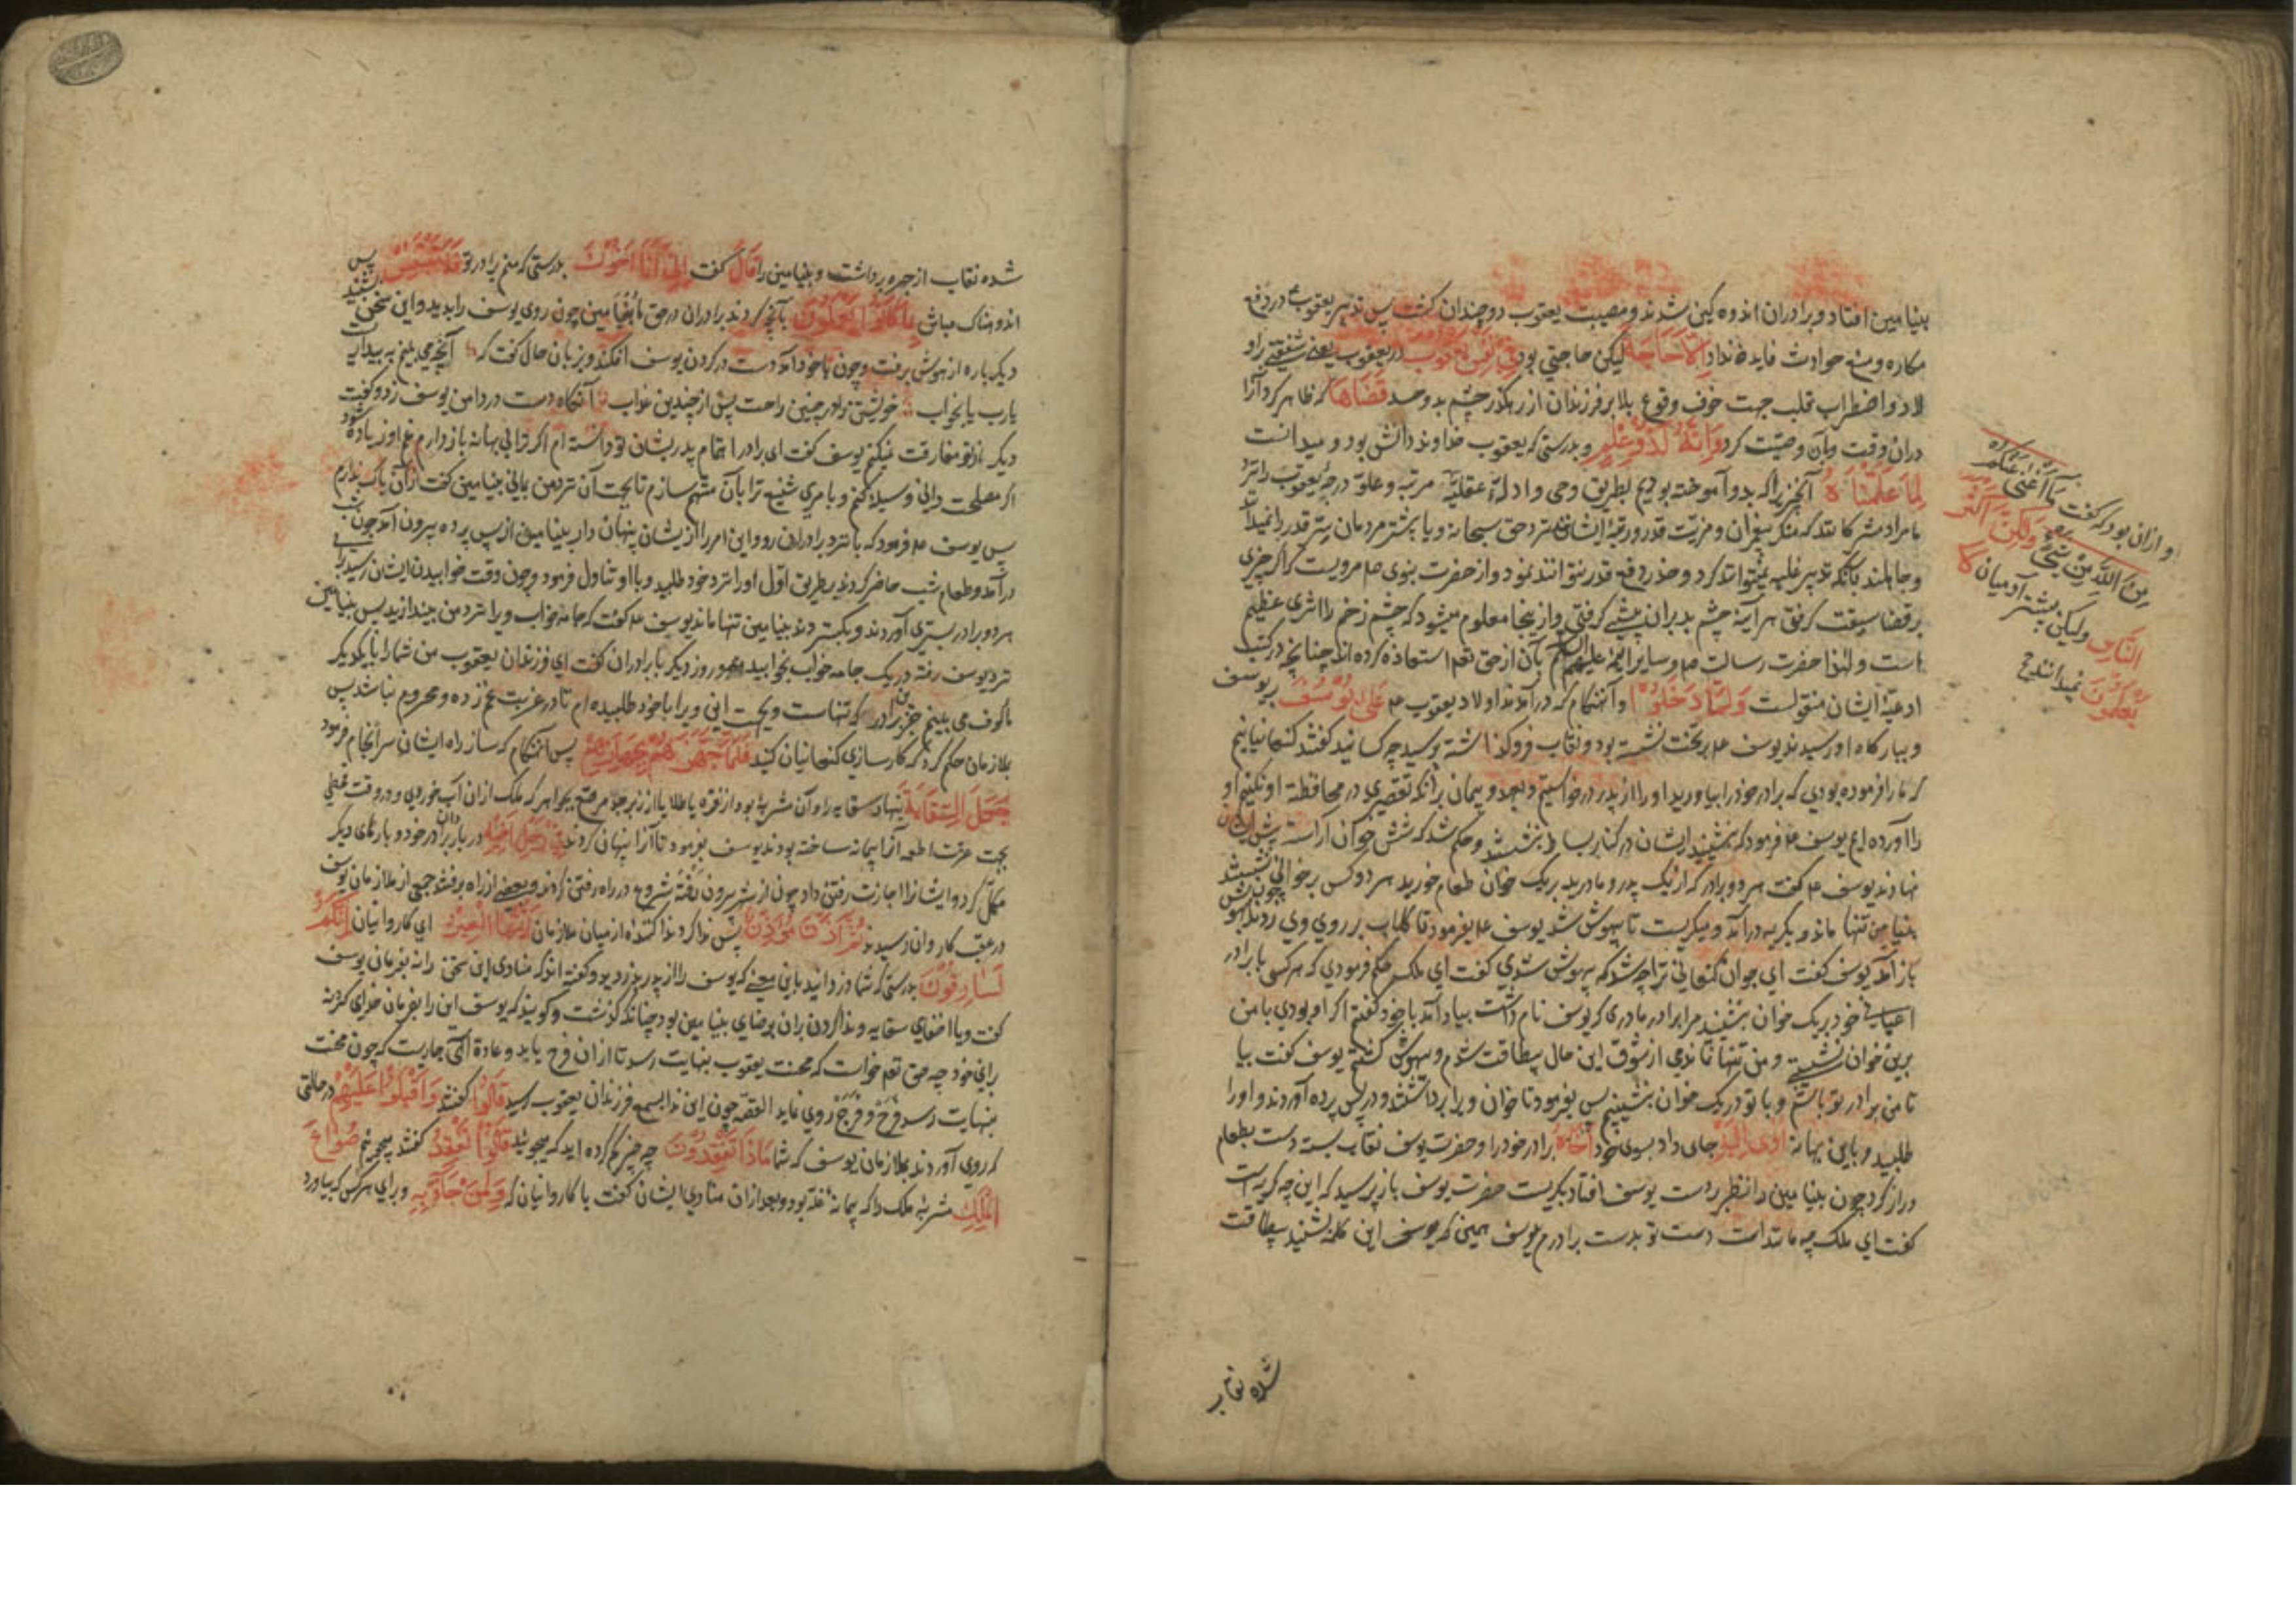 بنیامین افتاد و برادران اندوه کین شدند و مصیبت یعقوب دوچندان کشت پس تدبیر یعقوب در دفع
مکاره و منع حوادث فایده نداد اِلّا حَاجَةً لیکن حاجتی بود فِی نَفْسِ یَعْقُوبَ در یعقوب یعنی شفقتی بر او
لاد و اضطراب قلب جهت خوف وقوع بلا بر فرزندان از رهکذر چشم بد و حسد قَضَاهَا که ظاهر کرد آنرا
دران وقت و بآن وصیّت کرد وَاِنَّهُ لَذُو عِلْمٍ و بدرستی که یعقوب خداوند دانش بود و میدانست
لِمَا عَلَّمْنَاهُ آنچیز را که بدو آموخته بودیم بطریق وحی و ادلهٔ عقلیّه مرتبه و علوّ درجهٔ یعقوب را نزد
ما مراد مشرکانند که منکر پیغمبران و مزیّت قدر و رتبهٔ ایشانند نزد حق سبحانه و یا بیشتر مردمان سرّ قدر را نمیدانند
و جاهلند بآنکه تدبیر غلبه نمیتواند کرد و حذر دفع قدر نتواند نمود و از حضرت نبوی صم مرویست که اکر چیزی
بر قضا سبقت کرفتی هر آینه چشم بد بران پیشی کرفتی و از اینجا معلوم میشود که چشم زخم را اثری عظیم
است و لهذا حضرت رسالت صم و سایر ائمه علیهم السلام بآن از حق تعم استعاذه کرده اند چنانچه در کتب
ادعیهٔ ایشان منقولست وَلَمَّا دَخَلُوا و آنهنکام که در آمدند اولاد یعقوب عم عَلٰی یُوسُفَ بر یوسف
و ببارکاه او رسیدند یوسف عم بر تخت نشسته بود و نقاب فروکذاشته پرسید چه کسانید کفتند کنعانیانیم
که ما را فرموده بودی که برادر خود را بیاورید او را از پدر درخواستیم و بعهد و پیمان بر آنکه تقصیری در محافظت او نکنیم او
را آورده ایم یوسف عم فرمود که بنشینید ایشان در کنار بساط بنشستند و حکم شد که شش خوان آراسته پیش ایشان
نهادند یوسف عم کفت هر دو برادر که از یک پدر و مادرید بر یک خوان طعام خورید هر دو کس بر خوانی نشستند
بنیامین تنها ماند و بکریه درآمد و میکریست تا بیهوش شد یوسف عم بفرمود تا کلاب بر روی وی زدند چون بهوش
باز آمد یوسف کفت ای جوان کنعانی ترا چه شد که بیهوش شدی کفت ای ملک حکم فرمودی که هر کسی با برادر
اعیانی خود بر یک خوان بنشیند مرا برادر مادری که یوسف نام داشت بیاد آمد با خود کفتم اکر او بودی با من
برین خوان نشستی و من تنها نماندمی از شوق این حال بیطاقت شدم و بیهوش کشتم یوسف کفت بیا
تا من برادر تو باشم و با تو در یک خوان بنشینم پس بفرمود تا خوان ویرا برداشتند و در پس پرده آوردند و او را
طلبید و باین بهانه اٰوٰی اِلَیْهِ جای داد بسوی خود اَخَاهُ برادر خود را و حضرت یوسف نقاب بسته دست بطعام
دراز کرد چون بنیامین را نظر بر دست یوسف افتاد بکریست حضرت یوسف باز پرسید که این چه کریه است
کفت ای ملک چه مانند است دست تو بدست برادرم یوسف همین که یوسف این کلمه بشنید بیطاقت
شده نقاب
و ازان بود که کفت مَا اَغْنٰی عَنْکُمْ
مِنَ اللّٰهِ مِنْ شَیْءٍ وَلٰکِنَّ اَکْثَرَ
النَّاسِ ولیکن بیشتر آدمیان لَا
یَعْلَمُونَ نمیدانند
شده نقاب از چهره برداشت و بنیامین را قَالَ کفت اِنّی اَنَا اَخُوكَ بدرستی که منم برادر تو فَلَا تَبْتَئِسْ پس
اندوهناک مباش بِمَا کَانُوا یَعْمَلُونَ بآنچه کردند برادران در حق ما بنیامین چون روی یوسف را بدید و این سخن بشنید
دیکر باره از هوش برفت و چون با خود آمد دست در کردن یوسف افکند و بزبان حال کفت که آنچه می بینم به بیداریست
یارب یا بخواب خویشتن را در چنین راحت پس از چندین عذاب آنکاه دست در دامن یوسف زد و کفت
دیکر از تو مفارقت نمیکنم یوسف کفت ای برادر اهتمام پدر بشان تو دانسته ام اکر ترا بی بهانه باز دارم غم او زیاده شود
اکر مصلحت دانی وسیله کنم و بامری شنیع ترا بآن متهم سازم تا بجهت آن نزد من بمانی بنیامین کفت از آن باک ندارم
پس یوسف عم فرمود که با نزد برادران رو و این امر را از ایشان پنهان دار بنیامین از پس پرده بیرون آمد چون شب
درآمد و طعام شب حاضر کردند بطریق اوّل او را نزد خود طلبید و با او تناول فرمود و چون وقت خوابیدن ایشان رسید برای
هر دو برادر بستری آوردند و بکستردند بنیامین تنها ماند یوسف عم کفت که جامه خواب ویرا نزد من بیندازید پس بنیامین
نزد یوسف رفته در یک جامه خواب بخوابیدند روز دیکر با برادران کفت ای فرزندان یعقوب من شما را با یکدیکر
مألوف می بینم جز این برادر که تنهاست و بجهت این ویرا با خود طلبیده ام تا در غربت غم زده و محروم نباشد پس
ملازمان حکم کرد که کارسازی کنعانیان کنید فَلَمَّا جَهَّزَهُمْ بِجَهَازِهِمْ پس آنهنکام که ساز راه ایشان سرانجام فرمود
جَعَلَ السِّقَایَةَ بنهاد سقایه را و آن مشربهٔ بود از نقره یا طلا یا از زبرجد مرصّع بجواهر که ملک ازان آب خوردی و در وقت قحطی
بجهت عزت اطعمه آنرا پیمانه ساخته بودند یوسف بفرمود تا آنرا پنهان کردند فِی رَحْلِ اَخِیهِ در بار برادر خود و بارهای دیکر
مکمّل کرد و ایشانرا اجازت رفتن داد چون از شهر بیرون رفته شروع در راه رفتن کردند و بعضی از راه برفتند جمعی از ملازمان یوسف
در عقب کاروان رسیدند ثُمَّ اَذَّنَ مُؤَذِّنٌ پس ندا کرد ندا کننده از میان ملازمان اَیَّتُهَا الْعِیرُ ای کاروانیان اِنَّکُمْ
لَسَارِقُونَ بدرستی که شما دزدانید باین معنی که یوسف را از پدر بدزدیدید و کفته اند که منادی این سخن را نه بفرمان یوسف
کفت و یا اخفای سقایه و ندا کردن بران برضای بنیامین بود چنانکه کذشت و کویند که یوسف این را بفرمان خدای کرد نه
برای خود چه حق تعم خواست که محنت یعقوب بنهایت رسد تا ازان فرح یابد و عادة الهی جاریست که چون محنت
بنهایت رسد فرح و فرج روی نماید القصّه چون این ندا بسمع فرزندان یعقوب رسید قَالُوا کفتند وَاَقْبَلُوا عَلَیْهِمْ در حالتی
که روی آوردند بملازمان یوسف که شما مَاذَا تَفْقِدُونَ چه چیز کم کرده اید که میجوئید قَالُوا نَفْقِدُ کفتند میجوئیم صُوَاعَ
الْمَلِكِ مشربهٔ ملک را که پیمانهٔ غلّه بود و بعد ازان منادی ایشان کفت با کاروانیان که وَلِمَنْ جَاءَ بِهِ و برای هر کس که بیاورد